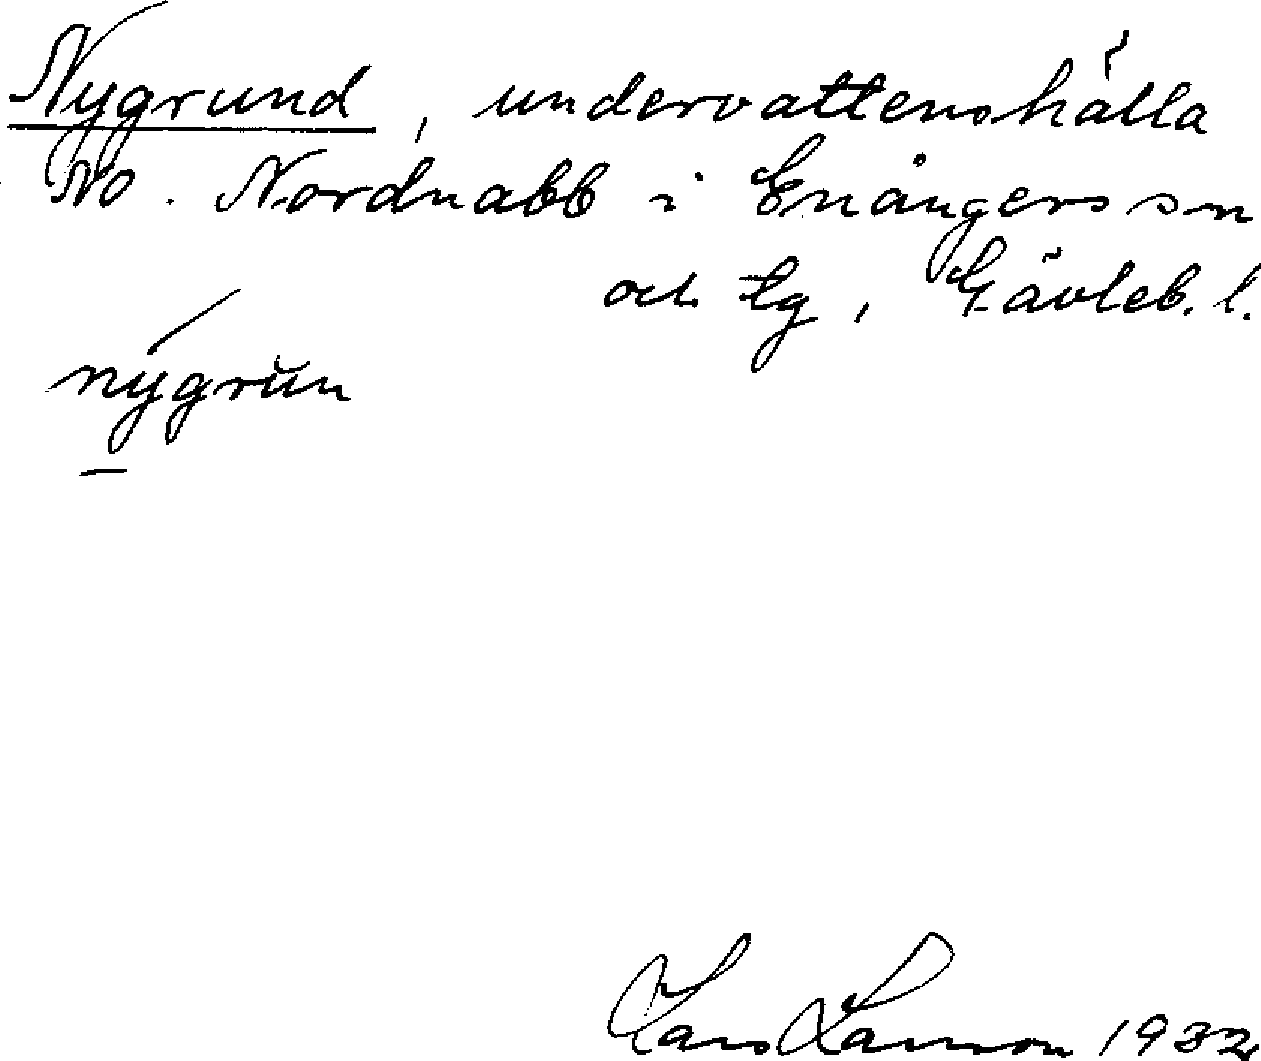 Nygrund, undervattenshälla
NO. Nordnabb i Enångers sn
och tg, Gävleb. l.
nýgrŭn
Lars Larsson 1932